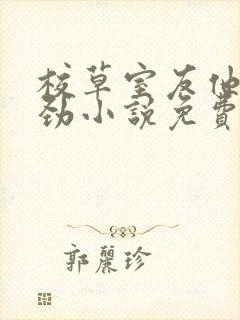 校草室友他
劲小說免費
郭麗珍